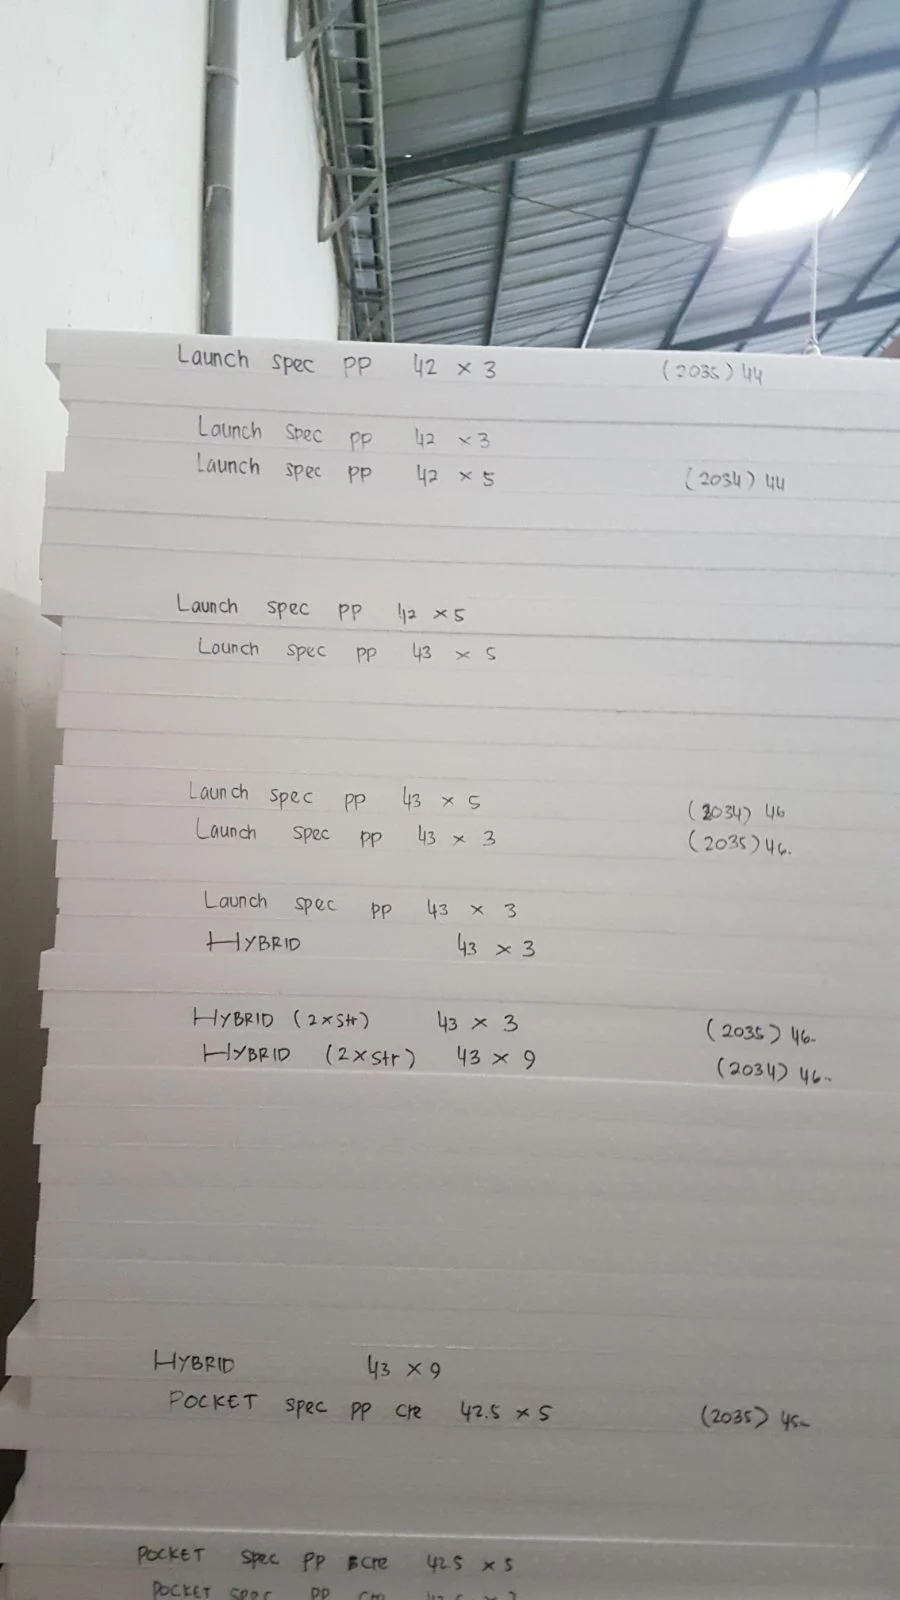 Launch spec pp 42 x 3 (2035) 44
Launch spec pp 42 x 3
Launch spec pp 42 x 5 (2034) 44
Launch spec pp 42 x 5
Launch spec pp 43 x 5
Launch spec pp 43 x 5 (2034) 46
Launch spec pp 43 x 3 (2035) 46.
Launch spec pp 43 x 3
HYBRID 43 x 3
HYBRID (2 x str) 43 x 3 (2035) 46-
HYBRID (2 x str) 43 x 9 (2034) 46-
HYBRID 43 x 9
POCKET spec pp cre 42.5 x 5 (2035) 45-
POCKET spec pp cre 42.5 x 5
POCKET spec pp